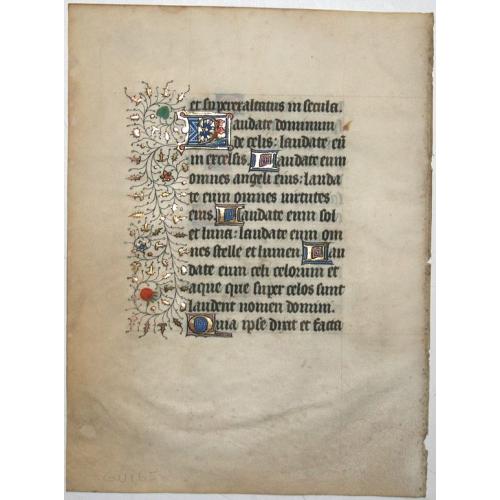 et superexaltatus in secula.
Laudate dominum
de celis: laudate eū
in excelsis. Laudate eum
omnes angeli eius: lauda
te eum omnes virtutes
eius. Laudate eum sol
et luna: laudate eum om
nes stelle et lumen. Lau
date eum celi celorum et
aque que super celos sunt
laudent nomen domini.
Quia ipse dixit et facta